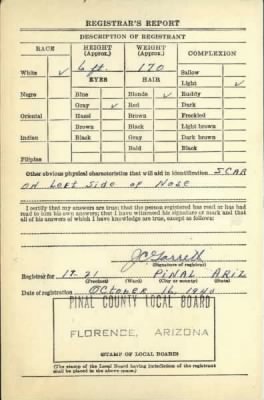 REGISTRAR'S REPORT
DESCRIPTION OF REGISTRANT
RACE HEIGHT (Approx.) WEIGHT (Approx.) COMPLEXION
6 ft. 170
White ✓ EYES HAIR Sallow
Light ✓
Negro Blue Blonde ✓ Ruddy
Gray ✓ Red Dark
Oriental Hazel Brown Freckled
Brown Black Light brown
Indian Black Gray Dark brown
Bald Black
Filipino
Other obvious physical characteristics that will aid in identification SCAR
ON Left Side of Nose
I certify that my answers are true; that the person registered has read or has had
read to him his own answers; that I have witnessed his signature or mark and that
all of his answers of which I have knowledge are true, except as follows:
(Signature of registrar)
Registrar for 17-21 PINAL ARIZ
(Precinct) (Ward) (City or county) (State)
Date of registration October 16, 1940
PINAL COUNTY LOCAL BOARD
FLORENCE, ARIZONA
STAMP OF LOCAL BOARD
(The stamp of the Local Board having jurisdiction of the registrant
shall be placed in the above space.)